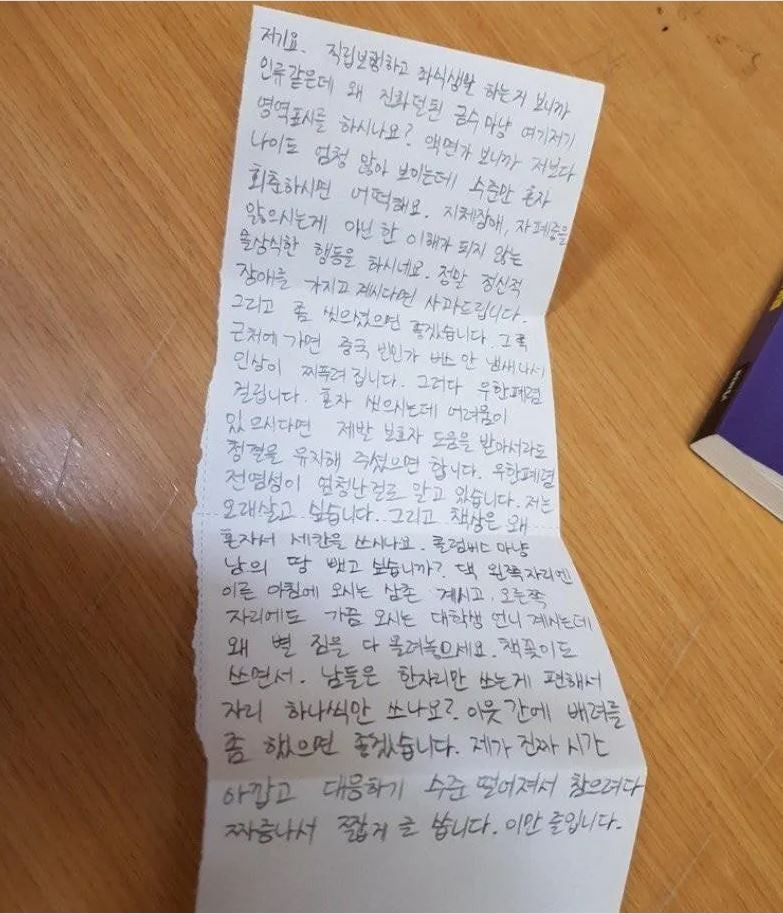 저기요. 직립보행하고 좌식생활 하는거 보니까
인류같은데 왜 진화덜된 금수마냥 여기저기
영역표시를 하시나요? 액면가 보니까 저보다
나이도 엄청 많아 보이는데 수준만 혼자
회춘하시면 어떡해요. 지체장애, 자폐증을
앓으시는게 아닌 한 이해가 되지 않는
몰상식한 행동을 하시네요. 정말 정신적
장애를 가지고 계시다면 사과드립니다.
그리고 좀 씻으셨으면 좋겠습니다. 그쪽
근처에 가면 중국 빈민가 버스 안 냄새나서
인상이 찌푸려집니다. 그러다 우한폐렴
걸립니다. 혼자 씻으시는데 어려움이
있으시다면 제발 보호자 도움을 받아서라도
청결을 유지해 주셨으면 합니다. 우한폐렴
전염성이 엄청난걸로 알고 있습니다. 저는
오래살고 싶습니다. 그리고 책상은 왜
혼자서 세칸을 쓰시나요. 콜럼버스 마냥
남의 땅 뺏고 싶습니까? 댁 왼쪽자리엔
이른 아침에 오시는 삼촌 계시고, 오른쪽
자리에도 가끔 오시는 대학생 언니 계시는데
왜 별 짐을 다 올려놓으세요. 책꽂이도
쓰면서. 남들은 한자리만 쓰는게 편해서
자리 하나씩만 쓰나요? 이웃 간에 배려를
좀 했으면 좋겠습니다. 제가 진짜 시간
아깝고 대응하기 수준 떨어져서 참으려다
짜증나서 짧게 글 씁니다. 이만 줄입니다.